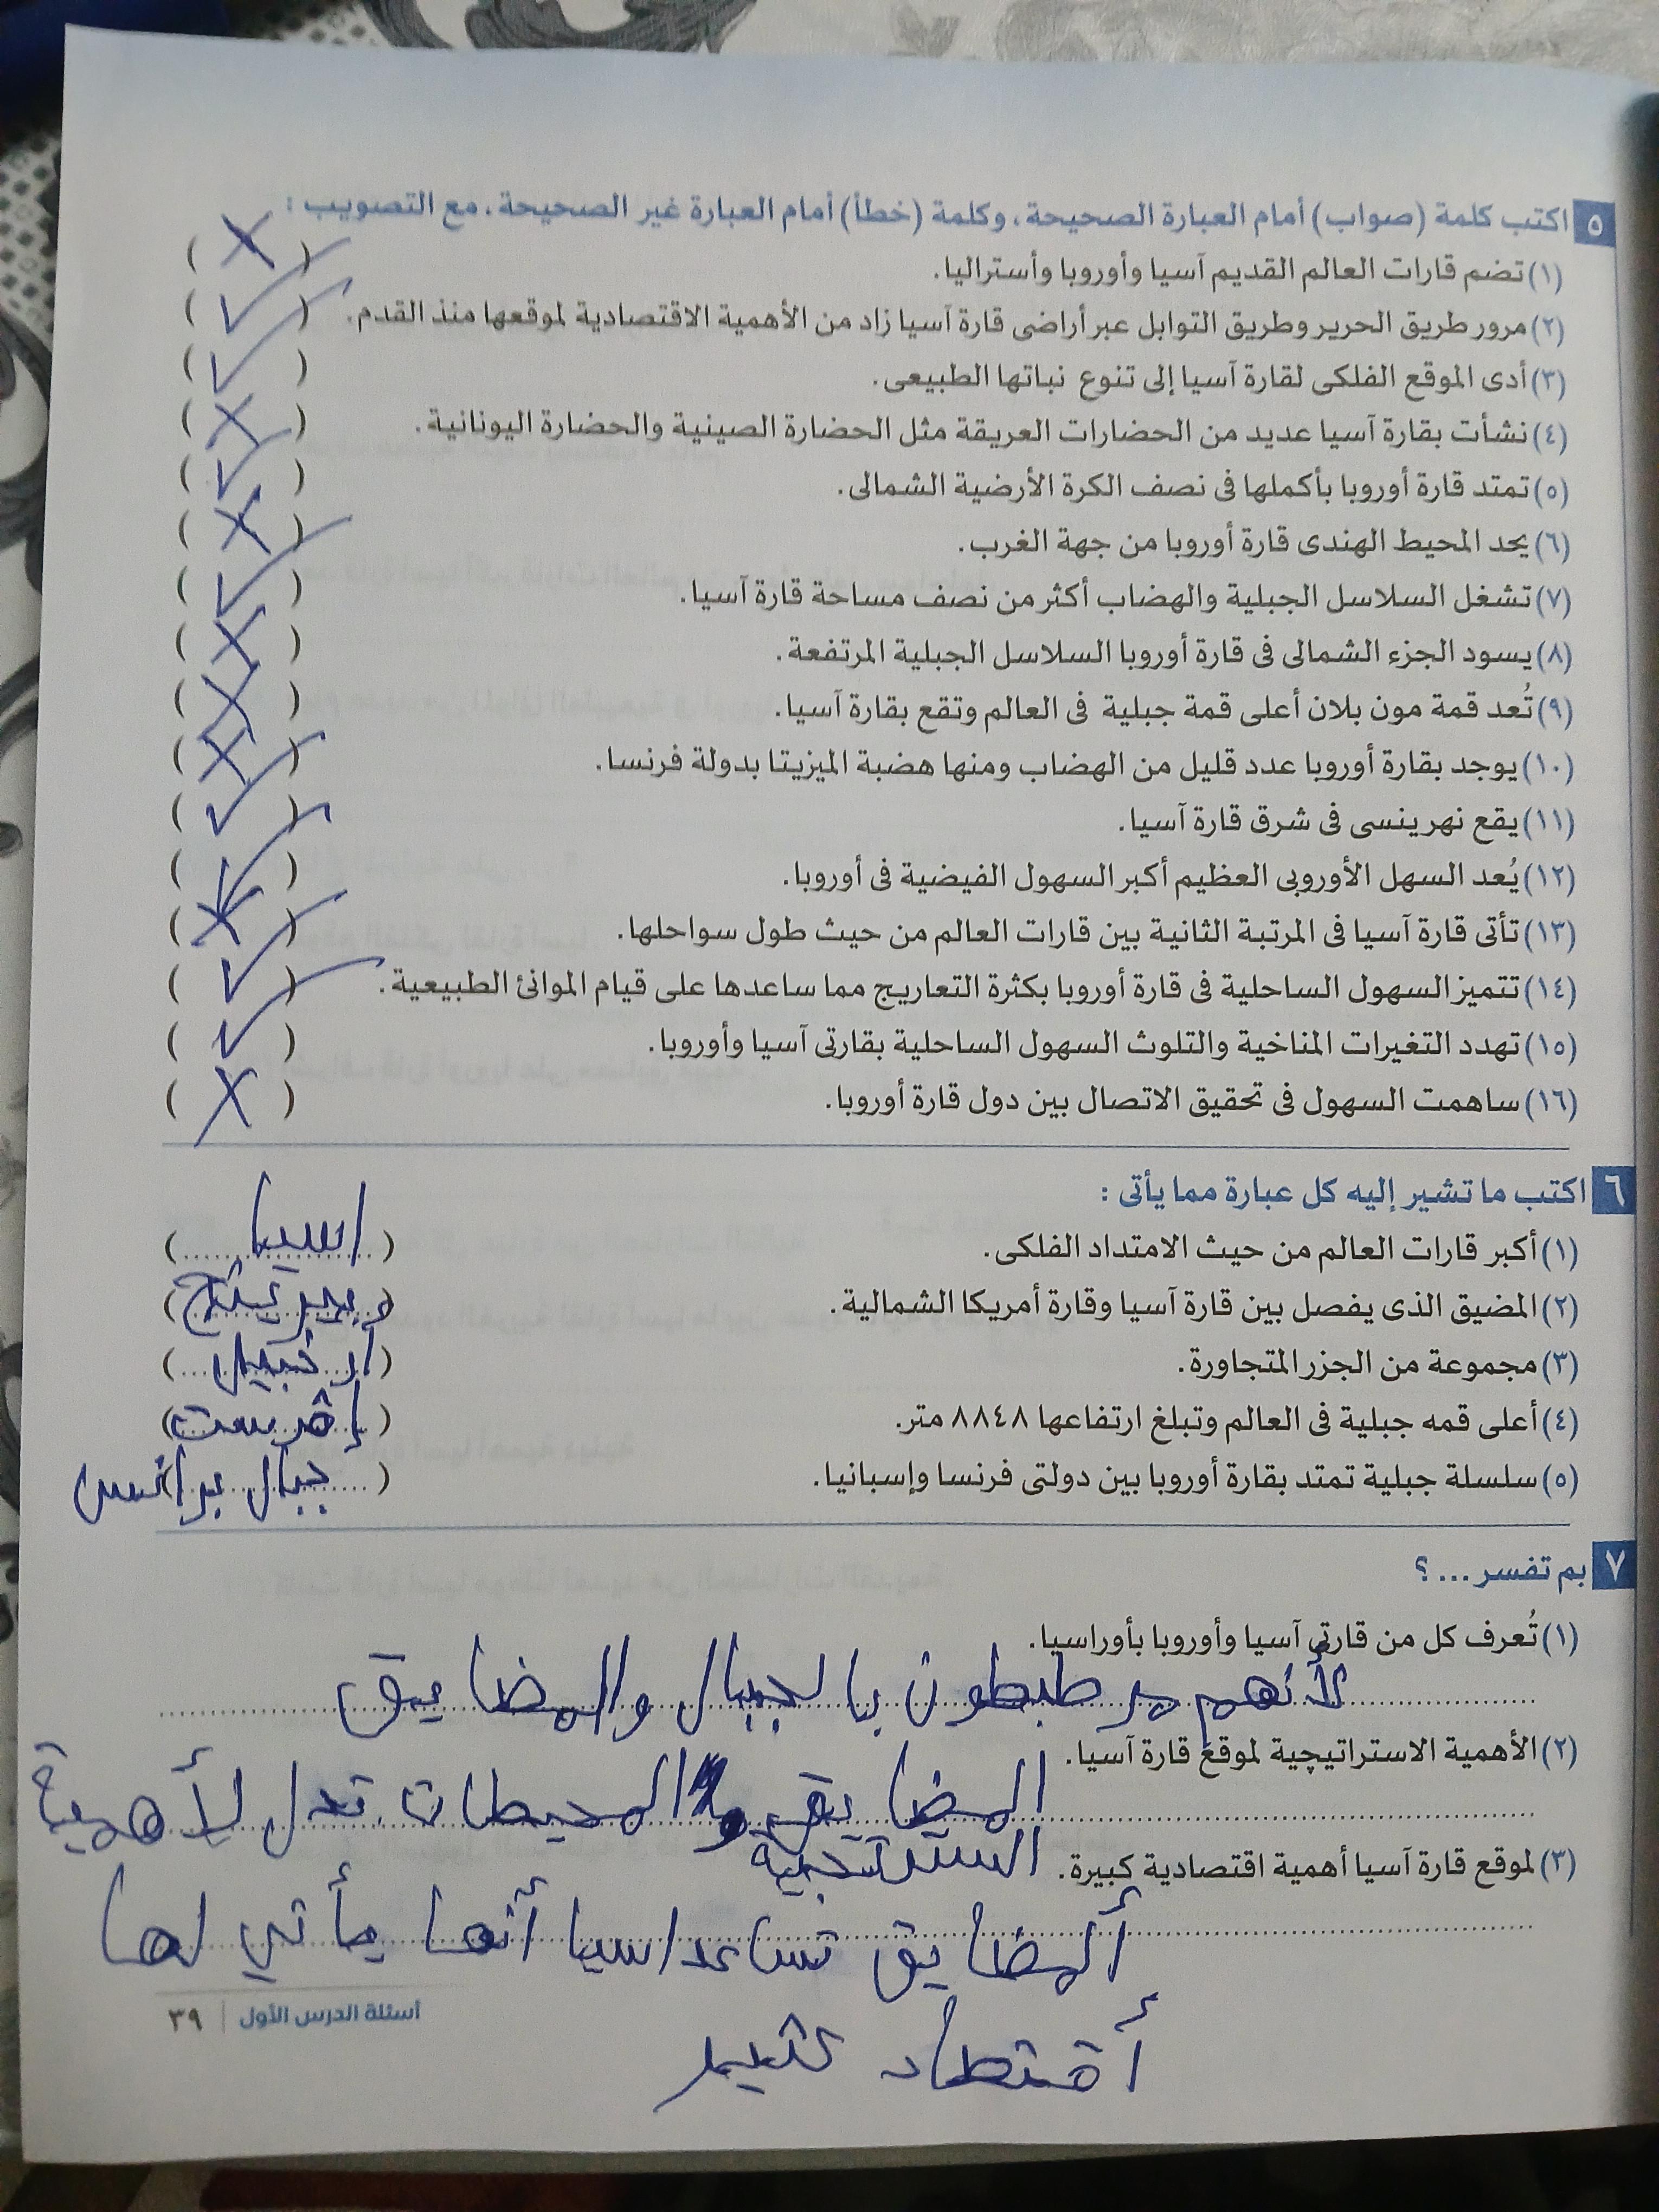 ٥ اكتب كلمة (صواب) أمام العبارة الصحيحة، وكلمة (خطأ) أمام العبارة غير الصحيحة، مع التصويب :
(١) تضم قارات العالم القديم آسيا وأوروبا وأستراليا. ( ✗ )
(٢) مرور طريق الحرير وطريق التوابل عبر أراضى قارة آسيا زاد من الأهمية الاقتصادية لموقعها منذ القدم. ( ✓ )
(٣) أدى الموقع الفلكى لقارة آسيا إلى تنوع نباتها الطبيعى. ( ✓ )
(٤) نشأت بقارة آسيا عديد من الحضارات العريقة مثل الحضارة الصينية والحضارة اليونانية. ( ✗ )
(٥) تمتد قارة أوروبا بأكملها فى نصف الكرة الأرضية الشمالى. ( ✓ )
(٦) يحد المحيط الهندى قارة أوروبا من جهة الغرب. ( ✗ )
(٧) تشغل السلاسل الجبلية والهضاب أكثر من نصف مساحة قارة آسيا. ( ✓ )
(٨) يسود الجزء الشمالى فى قارة أوروبا السلاسل الجبلية المرتفعة. ( ✗ )
(٩) تُعد قمة مون بلان أعلى قمة جبلية فى العالم وتقع بقارة آسيا. ( ✗ )
(١٠) يوجد بقارة أوروبا عدد قليل من الهضاب ومنها هضبة الميزيتا بدولة فرنسا. ( ✗ )
(١١) يقع نهر ينسى فى شرق قارة آسيا. ( ✓ )
(١٢) يُعد السهل الأوروبى العظيم أكبر السهول الفيضية فى أوروبا. ( ✓ )
(١٣) تأتى قارة آسيا فى المرتبة الثانية بين قارات العالم من حيث طول سواحلها. ( ✗ )
(١٤) تتميز السهول الساحلية فى قارة أوروبا بكثرة التعاريج مما ساعدها على قيام الموانئ الطبيعية. ( ✓ )
(١٥) تهدد التغيرات المناخية والتلوث السهول الساحلية بقارتى آسيا وأوروبا. ( ✓ )
(١٦) ساهمت السهول فى تحقيق الاتصال بين دول قارة أوروبا. ( ✗ )
٦ اكتب ما تشير إليه كل عبارة مما يأتى :
(١) أكبر قارات العالم من حيث الامتداد الفلكى. (اسيا)
(٢) المضيق الذى يفصل بين قارة آسيا وقارة أمريكا الشمالية.
(٣) مجموعة من الجزر المتجاورة.
(٤) أعلى قمه جبلية فى العالم وتبلغ ارتفاعها ٨٨٤٨ متر. (إفرست)
(٥) سلسلة جبلية تمتد بقارة أوروبا بين دولتى فرنسا وإسبانيا. (جبال برانس)
٧ بم تفسر ... ؟
(١) تُعرف كل من قارتي آسيا وأوروبا بأوراسيا.
لأنهم مرطبطون بالجبال والمضايق
(٢) الأهمية الاستراتيچية لموقع قارة آسيا.
المضايق والمحيطات تدل لأهمية
(٣) لموقع قارة آسيا أهمية اقتصادية كبيرة.
ألمضايق تساعد اسيا أنها يأتي لها
أقتصاد كثير
أسئلة الدرس الأول | ٣٩